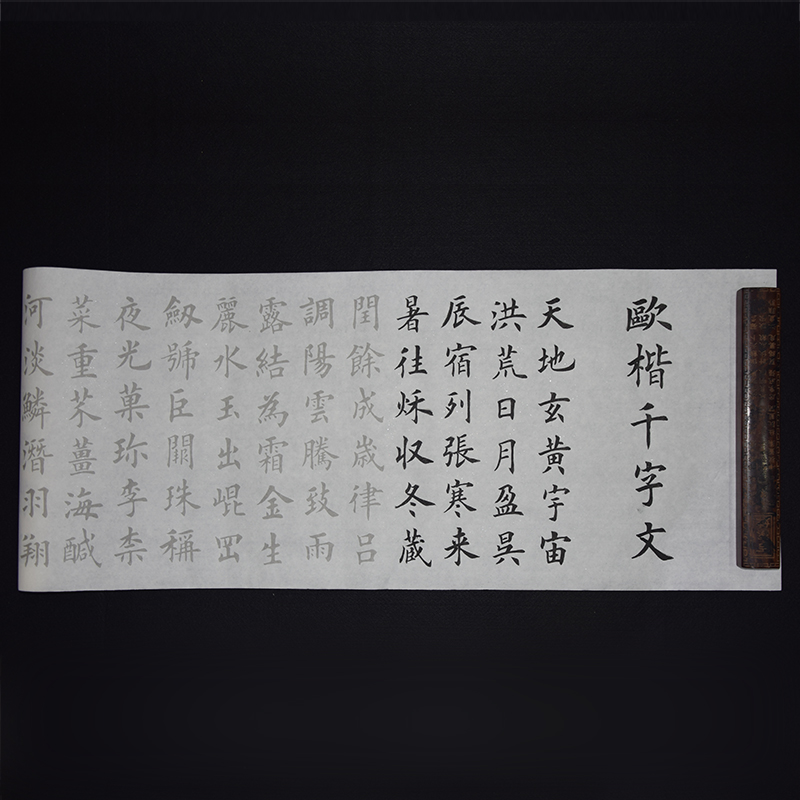 歐楷千字文
天地玄黃宇宙
洪荒日月盈昃
辰宿列張寒来
暑往秌収冬藏
閏餘成歳律吕
調陽雲騰致雨
露結為霜金生
麗水玉出崐罡
劔號巨闕珠稱
夜光菓珎李柰
菜重芥薑海醎
河淡鱗潛羽翔